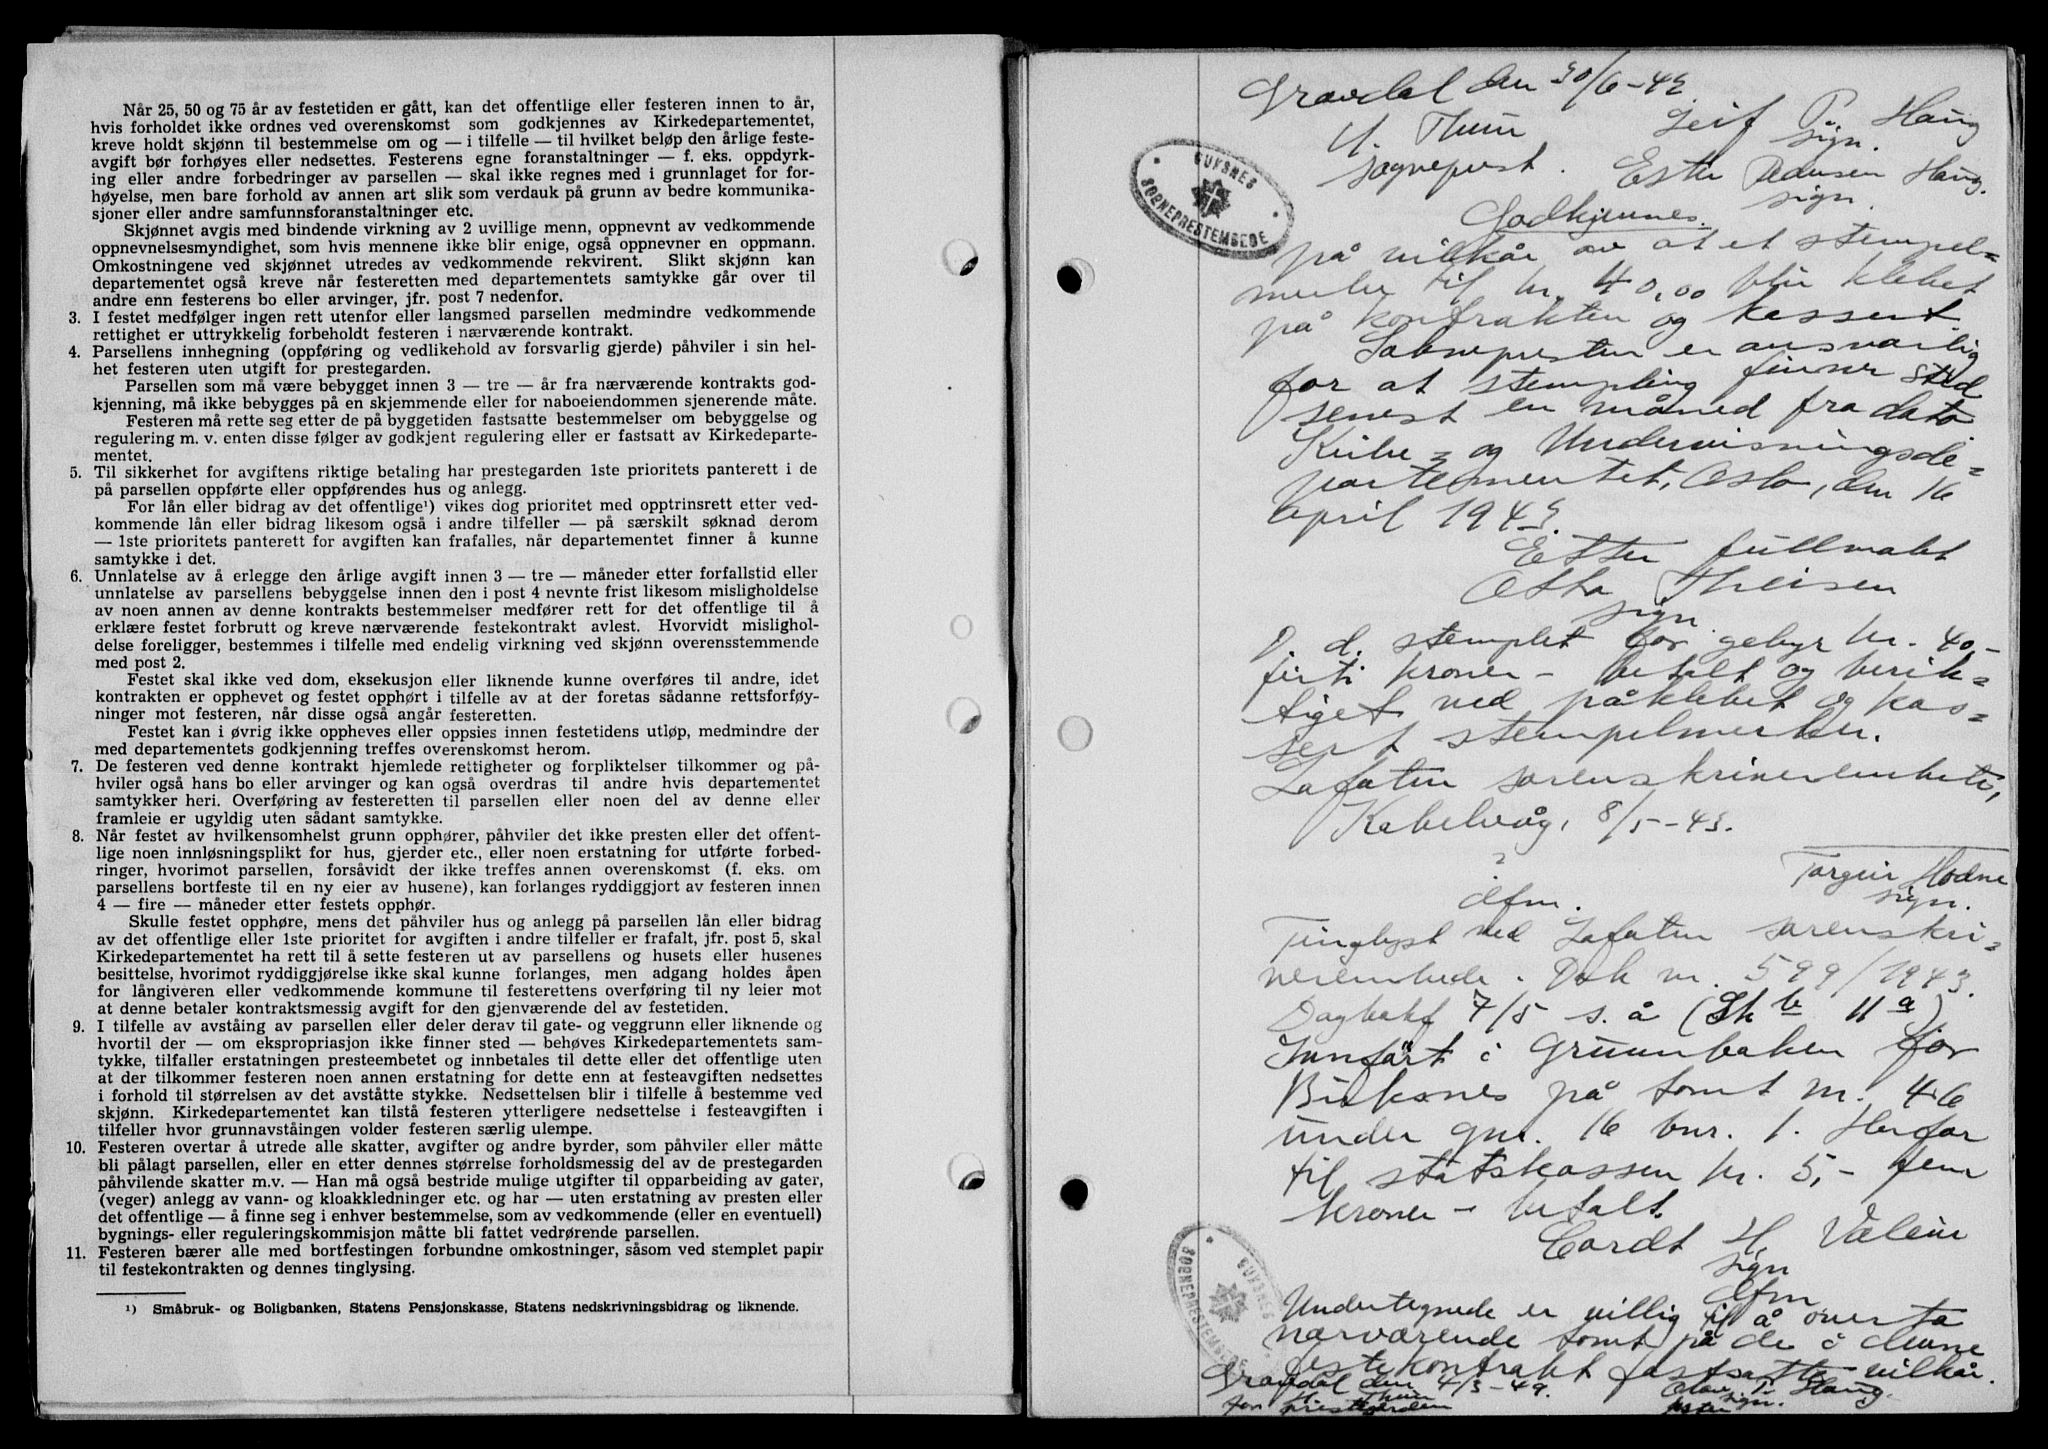 Når 25, 50 og 75 år av festetiden er gått, kan det offentlige eller festeren innen to år,
hvis forholdet ikke ordnes ved overenskomst som godkjennes av Kirkedepartementet,
kreve holdt skjønn til bestemmelse om og — i tilfelle — til hvilket beløp den årlige feste-
avgift bør forhøyes eller nedsettes. Festerens egne foranstaltninger — f. eks. oppdyrk-
ing eller andre forbedringer av parsellen — skal ikke regnes med i grunnlaget for for-
høyelse, men bare forhold av annen art slik som verdauk på grunn av bedre kommunika-
sjoner eller andre samfunnsforanstaltninger etc.
Skjønnet avgis med bindende virkning av 2 uvillige menn, oppnevnt av vedkommende
oppnevnelsesmyndighet, som hvis mennene ikke blir enige, også oppnevner en oppmann.
Omkostningene ved skjønnet utredes av vedkommende rekvirent. Slikt skjønn kan
departementet også kreve når festeretten med departementets samtykke går over til
andre enn festerens bo eller arvinger, jfr. post 7 nedenfor.
3. I festet medfølger ingen rett utenfor eller langsmed parsellen medmindre vedkommende
rettighet er uttrykkelig forbeholdt festeren i nærværende kontrakt.
4. Parsellens innhegning (oppføring og vedlikehold av forsvarlig gjerde) påhviler i sin hel-
het festeren uten utgift for prestegarden.
Parsellen som må være bebygget innen 3 — tre — år fra nærværende kontrakts god-
kjenning, må ikke bebygges på en skjemmende eller for naboeiendommen sjenerende måte.
Festeren må rette seg etter de på byggetiden fastsatte bestemmelser om bebyggelse og
regulering m. v. enten disse følger av godkjent regulering eller er fastsatt av Kirkedeparte-
mentet.
5. Til sikkerhet for avgiftens riktige betaling har prestegarden 1ste prioritets panterett i de
på parsellen oppførte eller oppførendes hus og anlegg.
For lån eller bidrag av det offentlige¹) vikes dog prioritet med opptrinsrett etter ved-
kommende lån eller bidrag likesom også i andre tilfeller — på særskilt søknad derom
— 1ste prioritets panterett for avgiften kan frafalles, når departementet finner å kunne
samtykke i det.
6. Unnlatelse av å erlegge den årlige avgift innen 3 — tre — måneder etter forfallstid eller
unnlatelse av parsellens bebyggelse innen den i post 4 nevnte frist likesom misligholdelse
av noen annen av denne kontrakts bestemmelser medfører rett for det offentlige til å
erklære festet forbrutt og kreve nærværende festekontrakt avlest. Hvorvidt mislighol-
delse foreligger, bestemmes i tilfelle med endelig virkning ved skjønn overensstemmende
med post 2.
Festet skal ikke ved dom, eksekusjon eller liknende kunne overføres til andre, idet
kontrakten er opphevet og festet opphørt i tilfelle av at der foretas sådanne rettsforføy-
ninger mot festeren, når disse også angår festeretten.
Festet kan i øvrig ikke oppheves eller oppsies innen festetidens utløp, medmindre der
med departementets godkjenning treffes overenskomst herom.
7. De festeren ved denne kontrakt hjemlede rettigheter og forpliktelser tilkommer og på-
hviler også hans bo eller arvinger og kan også overdras til andre hvis departementet
samtykker heri. Overføring av festeretten til parsellen eller noen del av denne eller
framleie er ugyldig uten sådant samtykke.
8. Når festet av hvilkensomhelst grunn opphører, påhviler det ikke presten eller det offent-
lige noen innløsningsplikt for hus, gjerder etc., eller noen erstatning for utførte forbed-
ringer, hvorimot parsellen, forsåvidt der ikke treffes annen overenskomst (f. eks. om
parsellens bortfeste til en ny eier av husene), kan forlanges ryddiggjort av festeren innen
4 — fire — måneder etter festets opphør.
Skulle festet opphøre, mens det påhviler hus og anlegg på parsellen lån eller bidrag
av det offentlige eller 1ste prioritet for avgiften i andre tilfeller er frafalt, jfr. post 5, skal
Kirkedepartementet ha rett til å sette festeren ut av parsellens og husets eller husenes
besittelse, hvorimot ryddiggjørelse ikke skal kunne forlanges, men adgang holdes åpen
for långiveren eller vedkommende kommune til festerettens overføring til ny leier mot
at denne betaler kontraktsmessig avgift for den gjenværende del av festetiden.
9. I tilfelle av avståing av parsellen eller deler derav til gate- og veggrunn eller liknende og
hvortil der — om ekspropriasjon ikke finner sted — behøves Kirkedepartementets sam-
tykke, tilfaller erstatningen presteembetet og innbetales til dette eller det offentlige uten
at der tilkommer festeren noen annen erstatning for dette enn at festeavgiften nedsettes
i forhold til størrelsen av det avståtte stykke. Nedsettelsen blir i tilfelle å bestemme ved
skjønn. Kirkedepartementet kan tilstå festeren ytterligere nedsettelse i festeavgiften i
tilfeller hvor grunnavståingen volder festeren særlig ulempe.
10. Festeren overtar å utrede alle skatter, avgifter og andre byrder, som påhviler eller måtte
bli pålagt parsellen, eller en etter dennes størrelse forholdsmessig del av de prestegarden
påhvilende skatter m.v. — Han må også bestride mulige utgifter til opparbeiding av gater,
(veger) anlegg av vann- og kloakkledninger etc. og har — uten erstatning av presten eller
det offentlige — å finne seg i enhver bestemmelse, som av vedkommende (eller en eventuell)
bygnings- eller reguleringskommisjon måtte bli fattet vedrørende parsellen.
11. Festeren bærer alle med bortfestingen forbundne omkostninger, såsom ved stemplet papir
til festekontrakten og dennes tinglysing.
¹) Småbruk- og Boligbanken, Statens Pensjonskasse, Statens nedskrivningsbidrag og liknende.
Gravdal den 30/6-42
Leif P. Haug
sign.
H. Thun
sogneprest.
Ester Pedersen Haug.
sign.
BUKSNES
SOKNEPRESTEMBEDE
Godkjennes.
på vilkår av at et stempel=
merke til kr. 40,00 blir klebet
på kontrakten og kassert.
Soknepresten er ansvarlig
for at stempling finner sted
senest en måned fra dato
Kirke = og Undervisningsde=
partementet, Oslo, den 16
april 1943.
Etter fullmakt
Otto Theisen
sign.
D. d. stemplet for gebyr kr. 40,-
førti kroner - betalt og berik=
tiget ved påklebet og kas=
sert stempelmerker.
Lofoten sorenskriverembete,
Kabelvåg, 8/5-43.
Torgeir Hodne
sign.
dfm.
Tinglyst ved Lofoten sorenskri=
verembede. Dok nr. 599/1943.
Dagbokf 7/5 s. å (Sk b 11a)
Innført i Grunnboken for
Buksnes på tomt nr. 46
under gnr. 16 bnr. 1. Herfor
til statskassen kr. 5,- fem
kroner - betalt.
Cordt H. Valeur
sign
dfm.
BUKSNES
SOKNEPRESTEMBEDE
Undertegnede er villig til å overta
nærværende tomt på de i denne
festekontrakt fastsatte vilkår.
Gravdal den 4/3-49.
H. Thun
for prestegården
Olav P. Haug.
sign.
fester